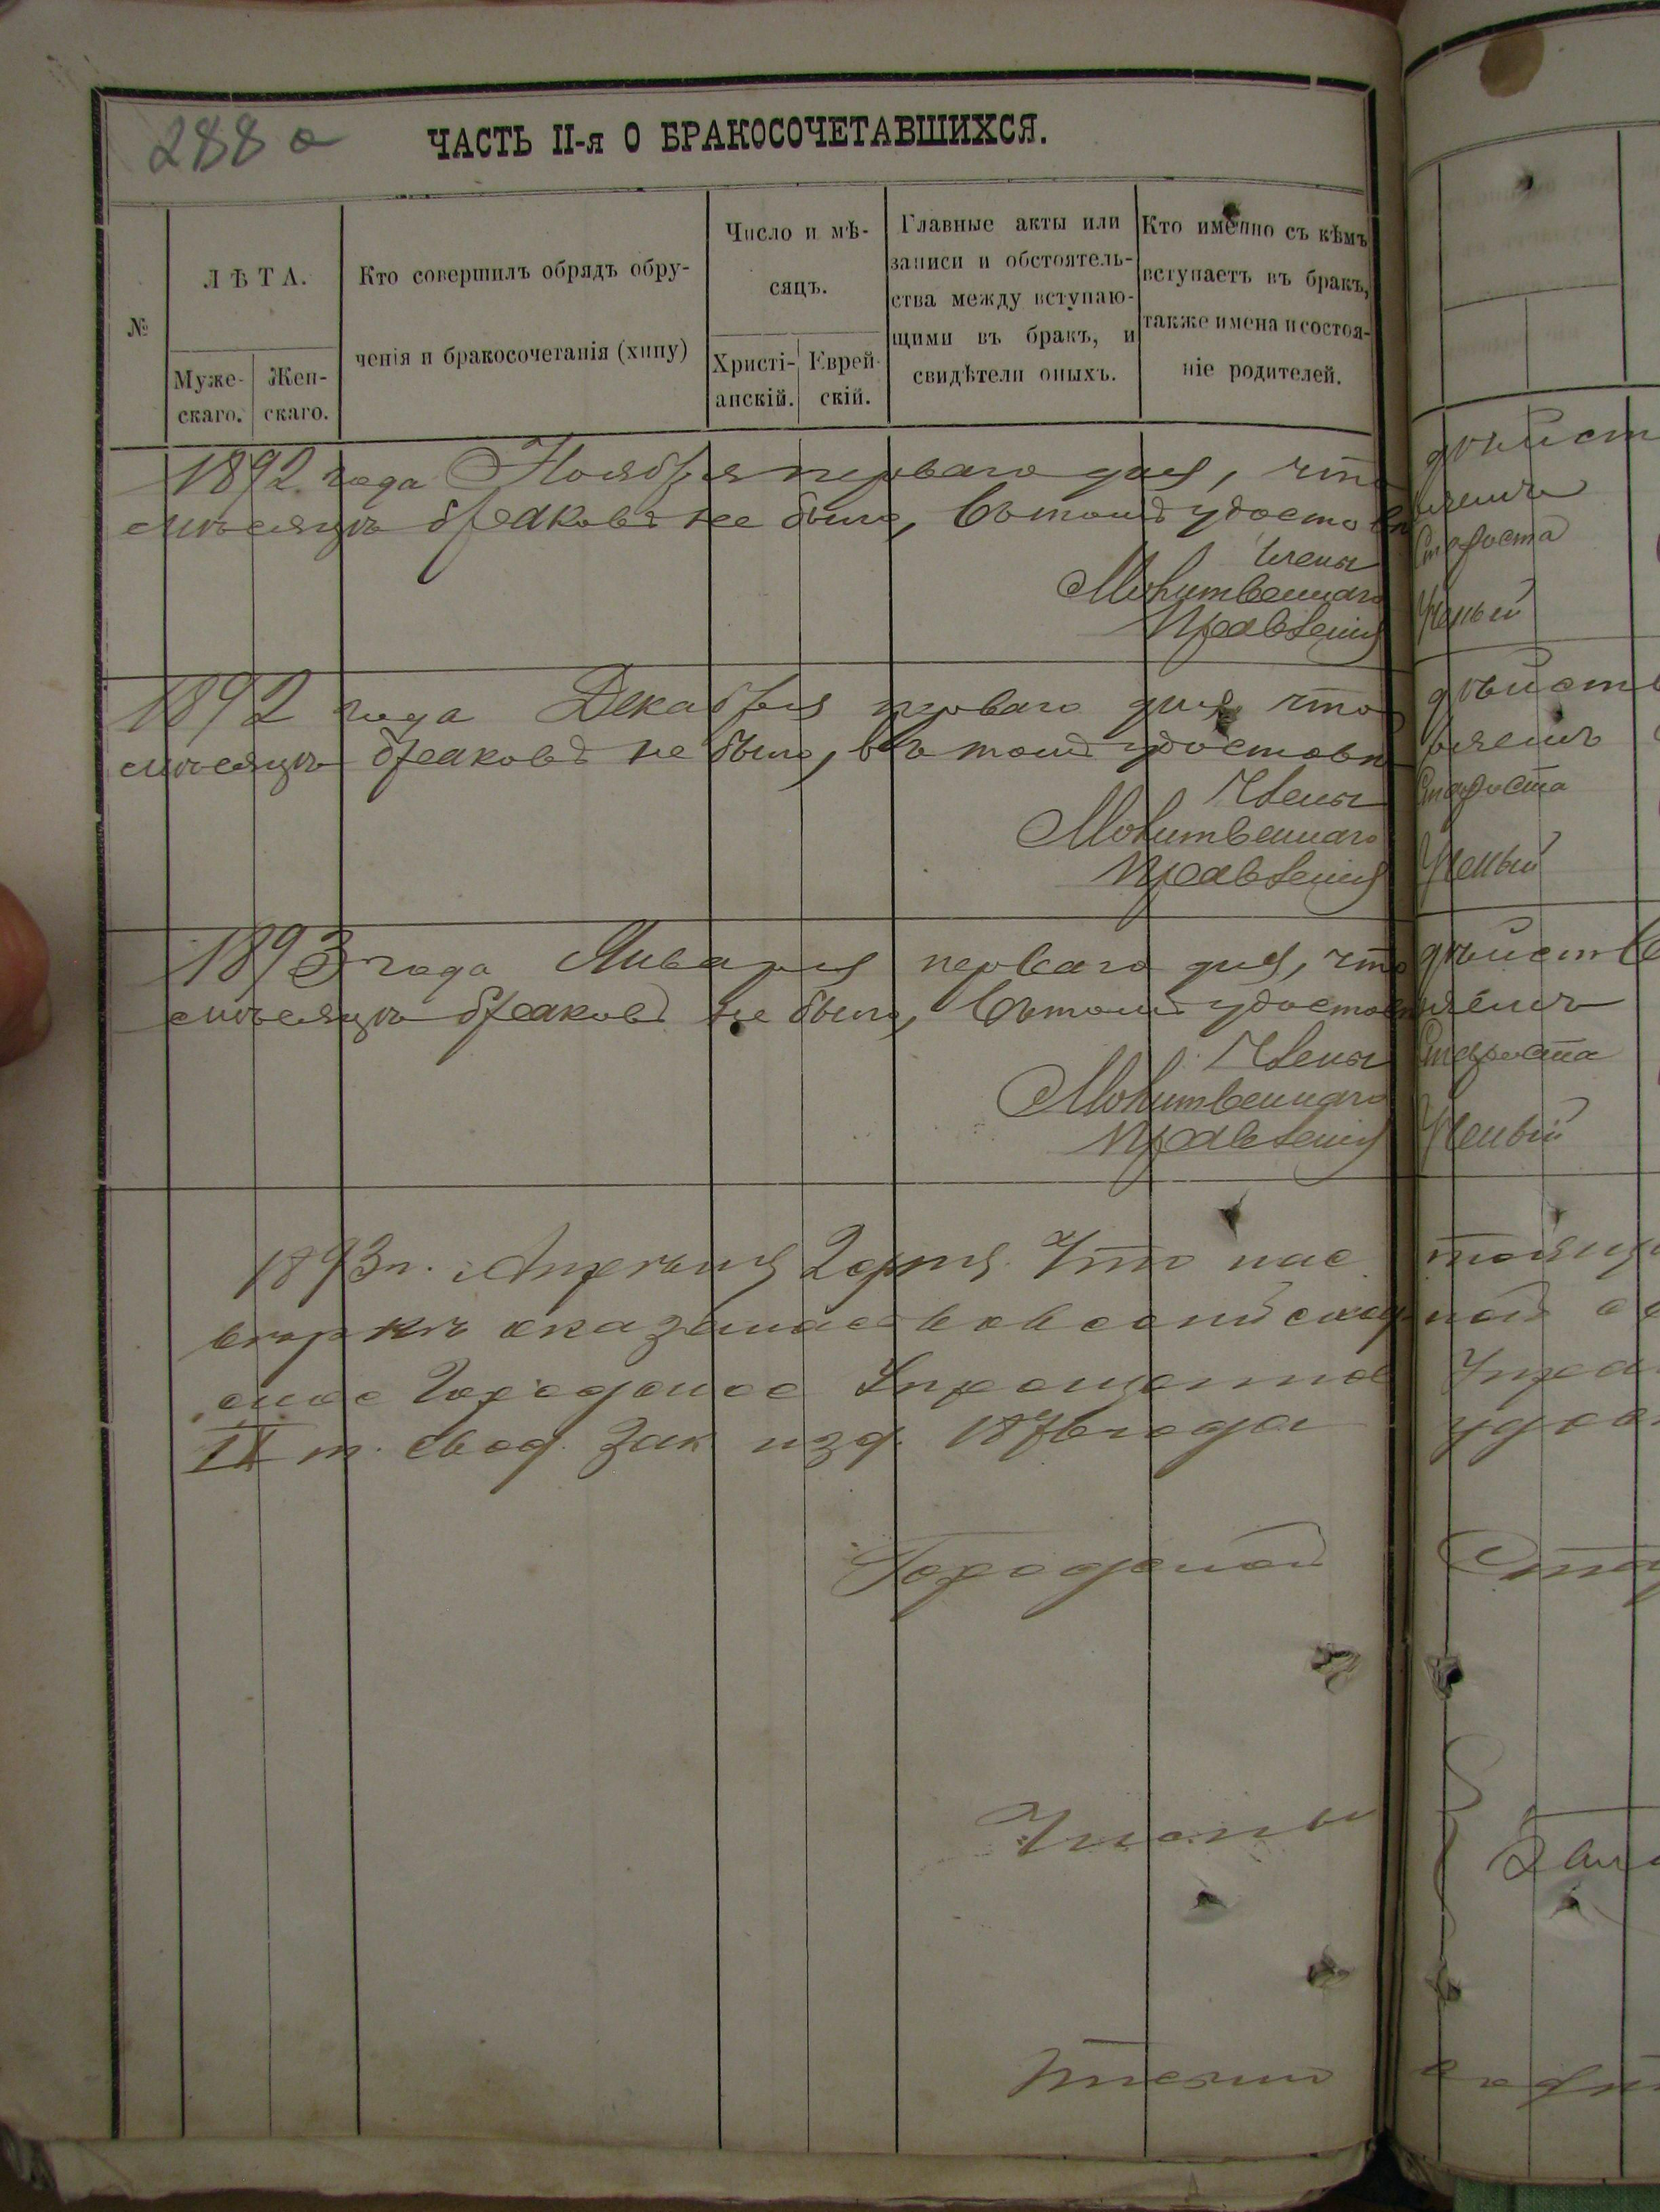 288 а
ЧАСТЬ II-я О БРАКОСОЧЕТАВШИХСЯ.
№
ЛѢТА.
Муже-
скаго.
Жен-
скаго.
Кто совершилъ обрядъ обру-
ченія и бракосочетанія (хупу)
Число и мѣ-
сяцъ.
Христі-
анскій.
Еврей-
скій.
Главные акты или
записи и обстоятель-
ства между вступаю-
щими въ бракъ, и
свидѣтели оныхъ.
Кто именно съ кѣмъ
вступаетъ въ бракъ,
также имена и состоя-
ніе родителей.
1892 года Ноября перваго дня, что дѣйст
мѣсяцѣ браковъ не было, въ томъ удостовѣ
Члены Староста
Молитвеннаго
Правленія Ученый
1892 года Декабря перваго дня что дѣйств
мѣсяцѣ браковъ не было, въ томъ удостов
Члены Староста
Молитвеннаго
Правленія Ученый
1893 года Января перваго дня, что дѣйств
мѣсяцѣ браковъ не было, въ томъ удостов
Члены Староста
Молитвеннаго
Правленія Ученый
1893 г. Апрѣля 2 дня. Что нас тоящ
оказалась во всемъ сход ной
Городское Упрощенное Упра
IX т. Свод. Зак изд. 1876 года удос
Городской Ста
Члены